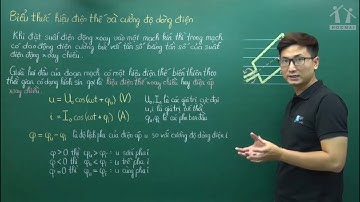 HOCMAI
Biểu thức hiệu điện thế và cường độ dòng điện
Khi đặt suất điện động xoay vào một mạch kín thì trong mạch
có dao động điện cưỡng bức với tần số bằng tần số của suất
điện động xoay chiều.
Giữa hai đầu của đoạn mạch có một hiệu điện thế biến thiên theo
thời gian có dạng hình sin, gọi là hiệu điện thế xoay chiều hay điện áp
xoay chiều
u = U₀cos(ωt + φᵤ) (V)
U₀, I₀ là các giá trị cực đại
i = I₀cos(ωt + φᵢ) (A)
u, i là giá trị tức thời
φᵤ, φᵢ là các pha ban đầu
φ = φᵤ - φᵢ là độ lệch pha của điện áp u so với cường độ dòng điện i
φ > 0 thì φᵤ > φᵢ : u sớm pha i
φ < 0 thì φᵤ < φᵢ : u trễ pha i
φ = 0 thì φᵤ = φᵢ : u cùng pha i